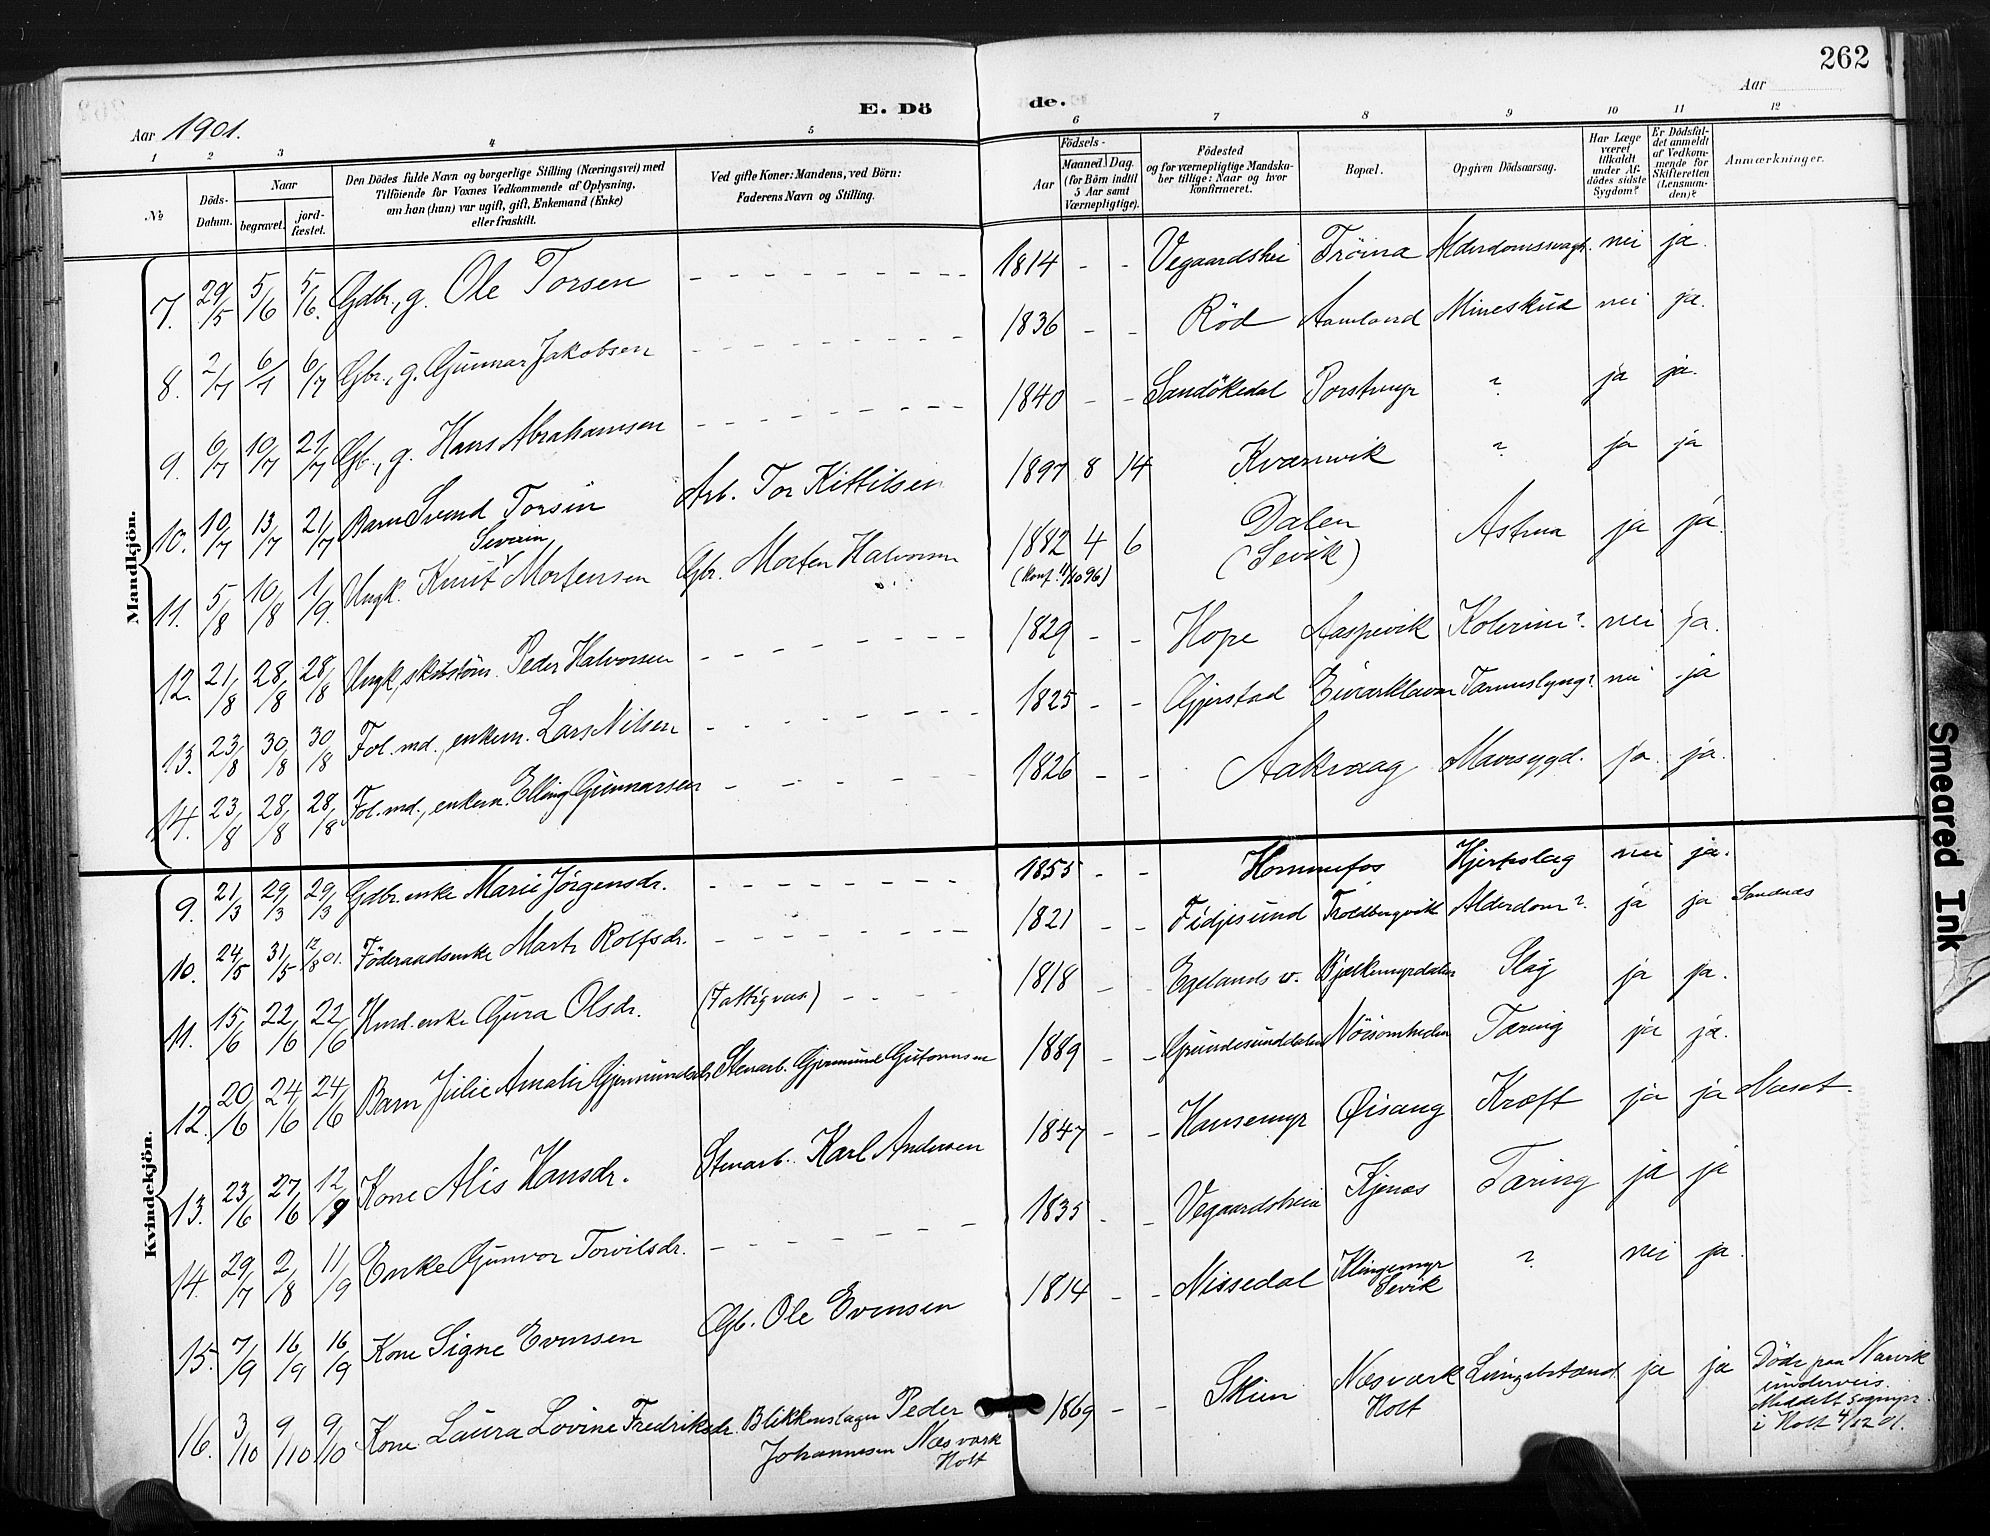 262
E. Dö de.
Aar 1901. Aar
1 2 3 4 5 6 7 8 9 10 11 12
№ Döds-Datum. Naar begravet. jordfæstet. Den Dödes fulde Navn og borgerlige Stilling (Næringsvei) med Tilföiende for Voxnes Vedkommende af Oplysning, om han (hun) var ugift, gift, Enkemand (Enke) eller fraskilt. Ved gifte Koner: Mandens, ved Börn: Faderens Navn og Stilling. Födsels- Aar Maaned Dag. (for Börn indtil 5 Aar samt Værnepligtige). Födested og for værnepligtige Mandskaber tillige: Naar og hvor konfirmeret. Bopæl. Opgiven Dödsaarsag. Har Læge været tilkaldt under Afdödes sidste Sygdom? Er Dödsfaldet anmeldt af Vedkommende for Skifteretten (Lensmanden)? Anmærkninger.
Mandkjön.
7. 29/5 5/6 5/6. Gdbr., g. Ole Torsen 1814 - - Vegaardshei Tröina nei ja.
8. 2/7 6/7 6/7 Gbr., g. Gunnar Jakobsen 1836 - - Röd Aamland Mineskud nei ja.
9. 6/7 10/7 21/7 Gb., g. Hans Abrahamsen 1840 - - Sandökedal Porstmyr ? ja ja.
10. 10/7 13/7 21/7 Barn Svend Torsen Arb. Tor Kittilsen 1897 8 14 Kvarnvik ? ja ja
11. 5/8 10/8 1/9. Ungk. Knut Severin Mortensen Gbr. Morten Halvorsen 1882 4 6 (Konf. 11/10 96) Dalen (Sevik) ja ja.
12. 21/8 28/8 28/8 Ungk, Peder Halvorsen 1829 - - Hope Aaspevik Kolerine? nei ja.
13. 23/8 30/8 30/8 Fol. md., enkem. Lars Nilsen 1825 - - Gjerstad Tarmslyng? nei ja
14. 23/8 28/8 28/8 Fol. md., enkem. Elling Gunnarsen 1826 - - Aakvaag Mavesygd. ja. ja.
Kvindekjön.
9. 21/3 29/3 29/3 Gdbr. enke Marie Jörgensdr. 1855 - - Hommefos Hjerteslag nei ja.
10. 24/5 31/5 12/8 01. Föderaadsenke Marte Rolfsdr. 1821 - - Fidjesund Troldbergvik Alderdom? ja ja Sandnes
11. 15/6 22/6 22/6 Husd. enke Gura Olsdr. (Fattigvæs) 1818 - - Egelands v. Bjelkemyrdalen Slag ja ja.
12. 20/6 24/6 24/6 Barn Julie Amalie Gjermundsdr. Stenarb. Gjermund Gutormsen 1889 - - Grundesunddalen Nörsomheden Tæring ja ja.
13. 23/6 27/6 12/9 Kone Alis Hansdr. Stenarb. Karl Andersen 1847 - - Hansemyr Öisang Kræft ja ja
14. 29/7 2/8 11/9 Enke Gunvor Torvilsdr. 1835 - - Vegaardsheia Kjenas Tæring ja ja
15. 7/9 16/9 16/9 Kone Signe Evensen Gb. Ole Evensen 1814 - - Nissedal Klingemyr Sevik ? nei ja.
16. 3/10 9/10 9/10 Kone Laura Lovine Fredriksdr. Blikkenslager Peder Johannesen Næsværk Holt 1869 - - Skien Næsværk Holt Lungebetænd ja ja Döde paa Narvik underveis. Meddelt sognepr. i Holt 4/12 01.
Smeared Ink